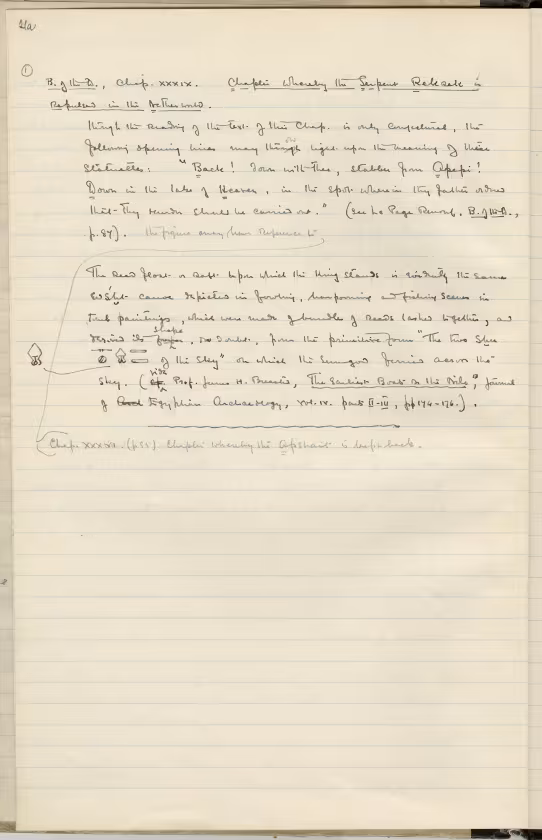 ①
B. of the D., Chap. XXXIX. Chapter whereby the Serpent Rekrek is
Repulsed in the Netherworld.
Though the reading of the text of this Chap. is only conjectural, the
following opening lines may throw light upon the meaning of these
statuettes: "Back! down with thee, stabber from Apepi!
Down in the lake of Heaven, in the spot wherein thy father ordered
that thy murder should be carried out." (See Le Page Renouf, B. of the D.,
p. 87). the figure may have reference to
The reed float or raft upon which the King stands is evidently the same
canoe depicted in fowling, harpooning and fishing scenes in
tomb paintings, which were made of bundles of reeds lashed together, and
derived its shape, no doubt, from the primitive form "The two
of the Sky" on which the Sungod ferried across the
sky. (vide Prof. James H. Breasted, The Earliest Boats on the Nile, Journal
of Egyptian Archaeology, vol. IV. parts II-III, pp 174-176.).
Chap. XXXVI. Chapter whereby the Apshait is kept back.